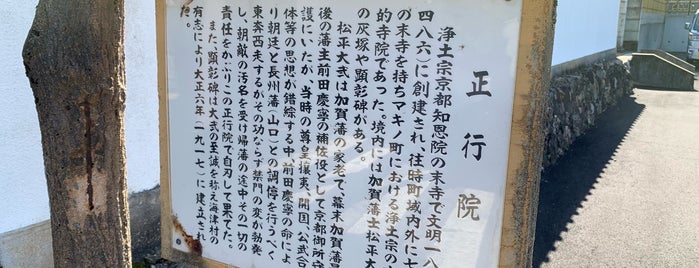 正行院
浄土宗京都知恩院の末寺で文明一八
四八六)に創建され、往時町域内外に七
の末寺を持ちマキノ町における浄土宗の中
的寺院であった。境内には加賀藩士松平大
の灰塚や顕彰碑がある。
松平大弐は加賀藩の家老で、幕末加賀藩最
後の藩主前田慶寧の補佐役として京都御所守
護にいたが、当時の尊皇攘夷、開国、公武合
体等の思想が錯綜する中、前田慶寧の命によ
り朝廷と長州藩(山口)との調停を行うべく
東奔西走するがその功ならず禁門の変が勃発
し、朝敵の汚名を受け帰藩の途中その一切の
責任をかぶりこの正行院で自刃して果てた。
また、顕彰碑は大弐の至誠を称え海津村の
有志により大正六年(一九一七)に建立され
た。